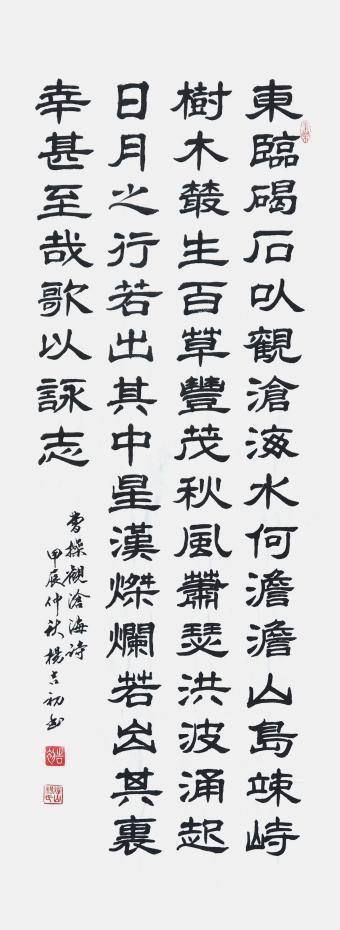 東臨碣石以觀滄海水何澹澹山島竦峙
樹木叢生百草豐茂秋風蕭瑟洪波涌起
日月之行若出其中星漢燦爛若出其裏
幸甚至哉歌以詠志
曹操觀滄海詩
甲辰仲秋楊吉初书